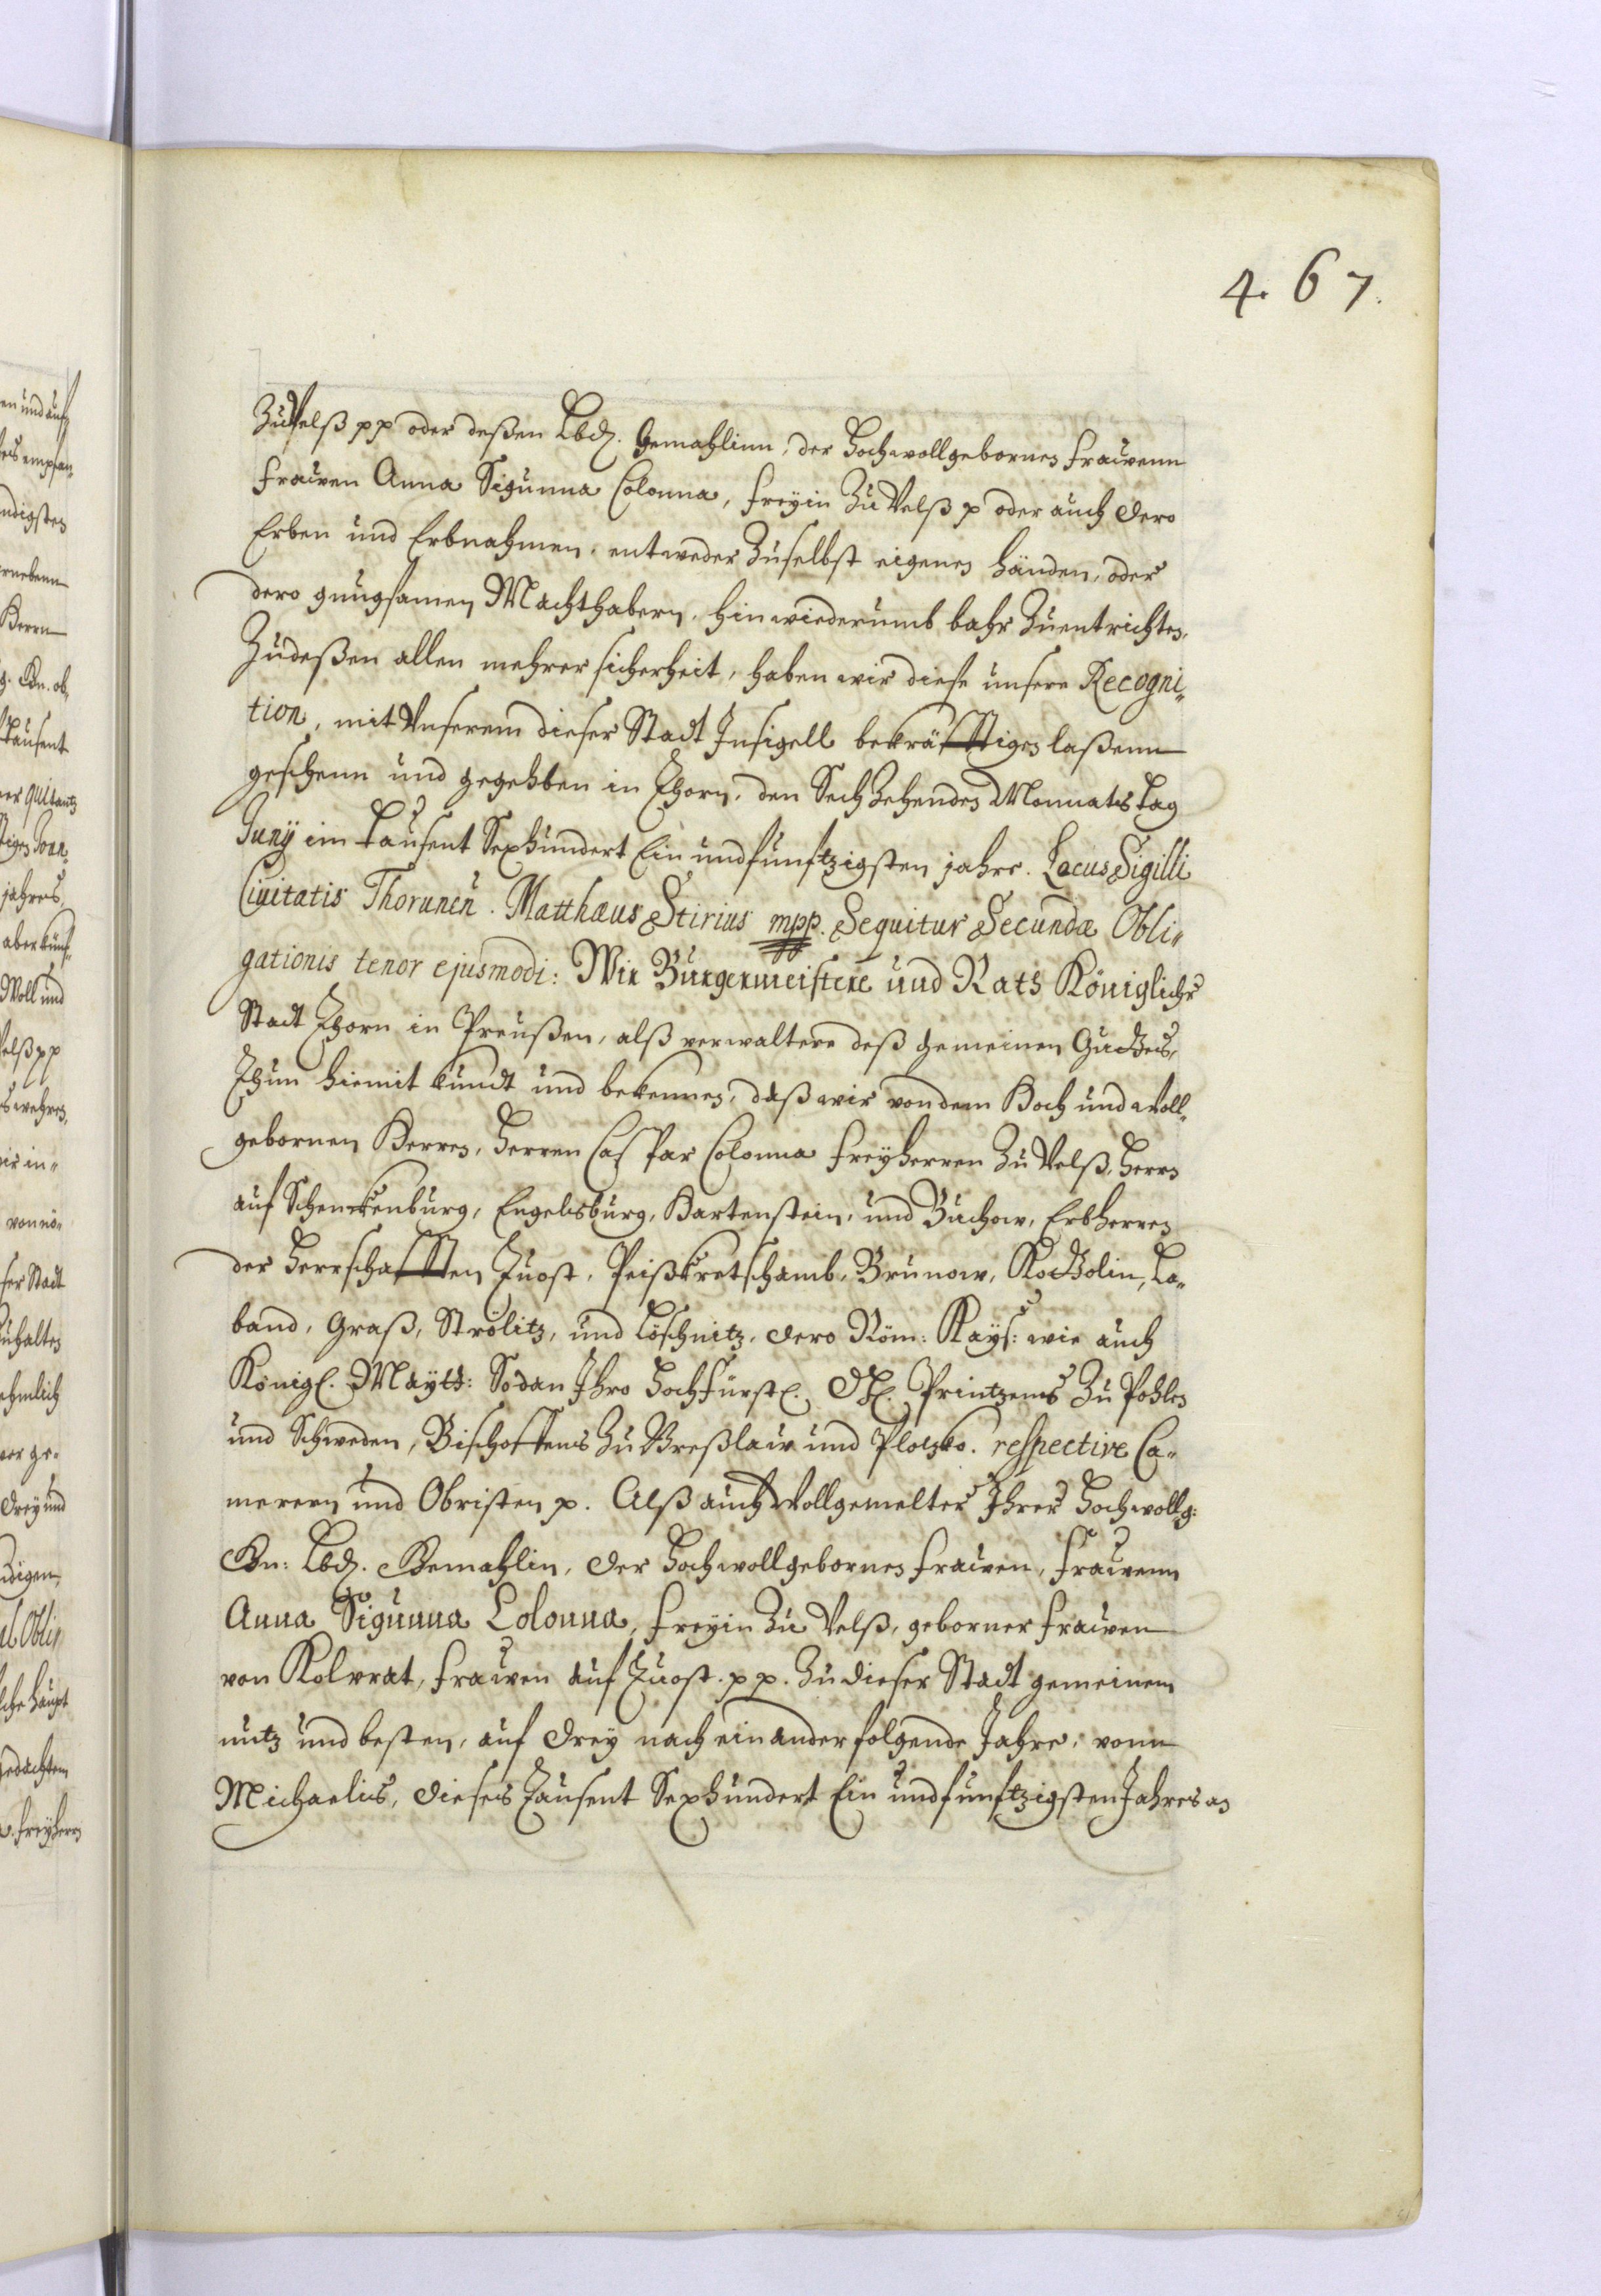 4. 67.
Zu Velß pp oder deßen Lbd. Gemahlinn, der Hochwollgebornen Frawenn
Frawen Anna Sigunna Colonna, Freyin Zu Velß p oder auch dero
Erben und Erbnahmen, entweder Zuselbst eigenen händen, oder
dero gnugsamen Machthabern, hinwiederumb bahr Zuentrichten,
Zudeßen allen mehrer sicherheit, haben wir diese unsere Recogni„
tion, mit Unserem dieser Stadt Insigell bekräfftigen laßenn
geschenn und gegehben in Thorn, den Sechzehenden Monnats tag
Junÿ im tausent Sexhundert Ein undfünftzigsten jahre. Locus Sigilli
Ciuitatis Thorunen. Matthæus Stirius mpp. Sequitur Secundæ Obli„
gationis tenor ejusmodi: Wir Bürgermeistere und Rats Königlicher
Stadt Thorn in Preußen, alß verwaltere deß gemeinen Guttes,
Thun hiemit kundt und bekennen, daß wir von dem Hoch und Woll„
gebornen Herren, Herren Caspar Colonna Freyherren Zu Velß, Herrn
auf Schenckenburg, Engelsburg, Hartenstein, und Buchow, Erbherren
der Herrschafften Tuost, Peißkretschamb, Brunow, Kottolin, La„
band, Graß, Strölitz, und Löschnitz, dero Röm: Kays: wie auch
Königl. Maytt: Sodan Ihro Hochfürstl. Dl. Printzens Zu Pohlen
und Schweden, Bischoffens Zu Breßlaw und Plotzko. respective Ca„
merern und Obristen p. Alß auch Wollgemelter Ihrer Hochwollg:
Gn: Lbd. Gemahlin, der Hochwollgebornen Frawen, Frawenn
Anna Sigunna Colonna, Freyin Zu Velß, geborner Frawen
von Kolvrat, Frawen auf Tuost. pp. Zu dieser Stadt gemeinem
nutz und besten, auf drey nach einander folgende Jahre, vonn
Michaelis, dieses Tausent Sexhundert Ein undfünftzigsten Jahres an